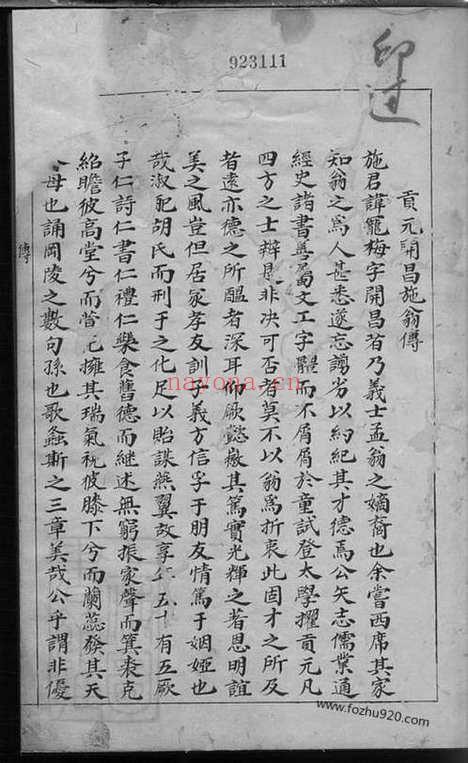 923111
印过
貢元開昌施翁傳
施君諱寵梅字開昌者乃義士孟翁之嫡裔也余嘗西席其家
知翁之為人甚悉遂忘謭劣以約紀其才德焉公矢志儒業通
經史諳書善屬文工字體而不屑屑於童試登太學擢貢元凡
四方之士辯是非决可否者莫不以翁為折衷此固才之所及
者遠亦德之所醞者深耳仰厥懿徽其篤實光輝之著恩明誼
美之風豈但居家孝友訓子義方信孚于朋友情篤于姻婭也
哉淑配胡氏而刑于之化足以貽謀燕翼故享年五十有五厥
子仁詩仁書仁禮仁樂食舊德而繼述無窮振家聲而箕裘克
紹瞻彼高堂兮而萱花擁其瑞氣祝彼膝下兮而蘭蕊發其天
母也誦岡陵之數句孫也歌螽斯之三章美哉公乎謂非優
傳
nayona.cn
www.fozhu920.com